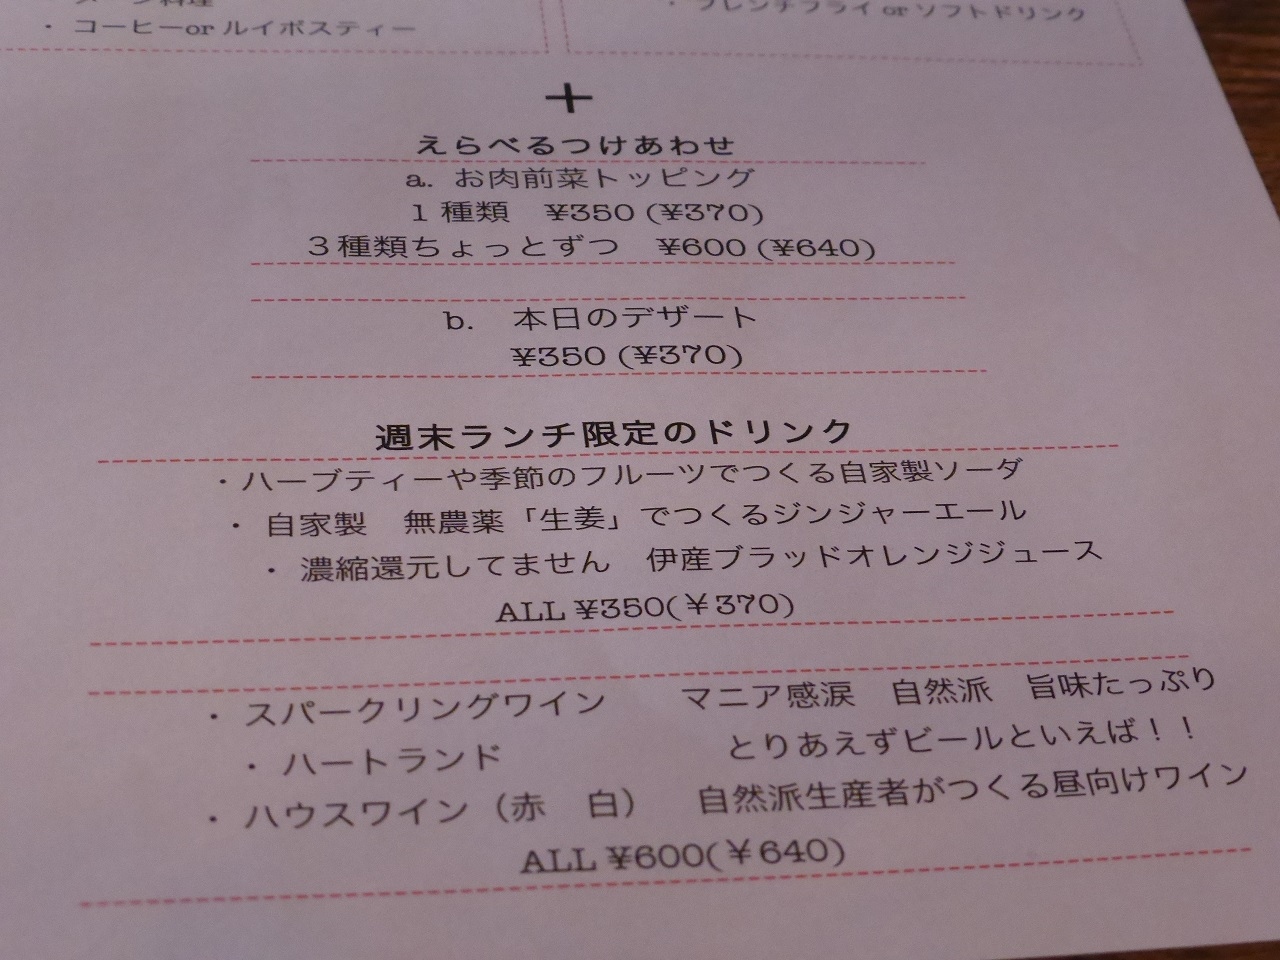 ・コーヒーor ルイボスティー
・フレンチフライ or ソフトドリンク
＋
えらべるつけあわせ
a. お肉前菜トッピング
1 種類　¥350 (¥370)
3 種類ちょっとずつ　¥600 (¥640)
b.　本日のデザート
¥350 (¥370)
週末ランチ限定のドリンク
・ハーブティーや季節のフルーツでつくる自家製ソーダ
・ 自家製　無農薬「生姜」でつくるジンジャーエール
・ 濃縮還元してません　伊産ブラッドオレンジジュース
ALL ¥350(￥370)
・ スパークリングワイン　　マニア感涙　自然派　旨味たっぷり
・ ハートランド　　とりあえずビールといえば！！
・ ハウスワイン（赤　白）　自然派生産者がつくる昼向けワイン
ALL ¥600(￥640)